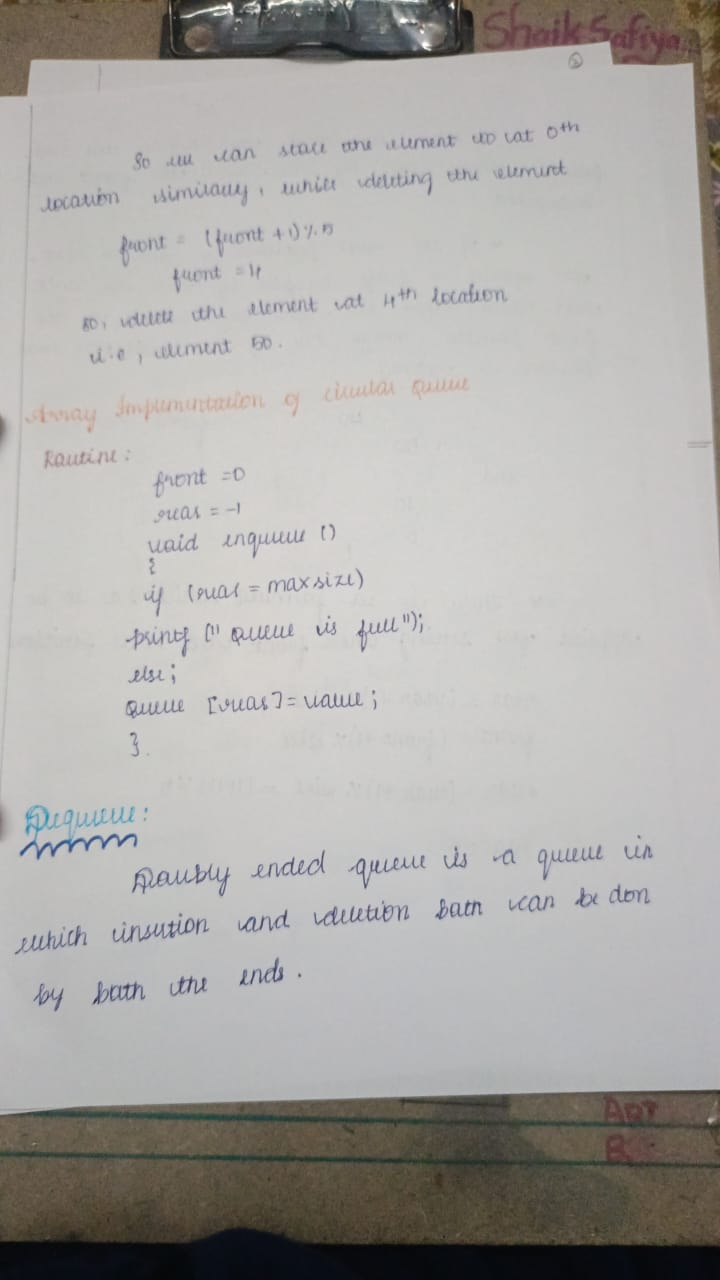 Shaik Safiya
2
So we can store the element 60 at 0th
location similarly, while deleting the element
front = (front + 1) % 5
front = 4
so, delete the element at 4th location
i.e, element 50.
Array Implementation of circular Queue
Routine:
front = 0
rear = -1
void enqueue ()
{
if (rear = maxsize)
printf (" Queue is full");
else;
Queue [rear] = value;
}.
Dequeue:
Doubly ended queue is a queue in
which insertion and deletion both can be don
by both the ends.